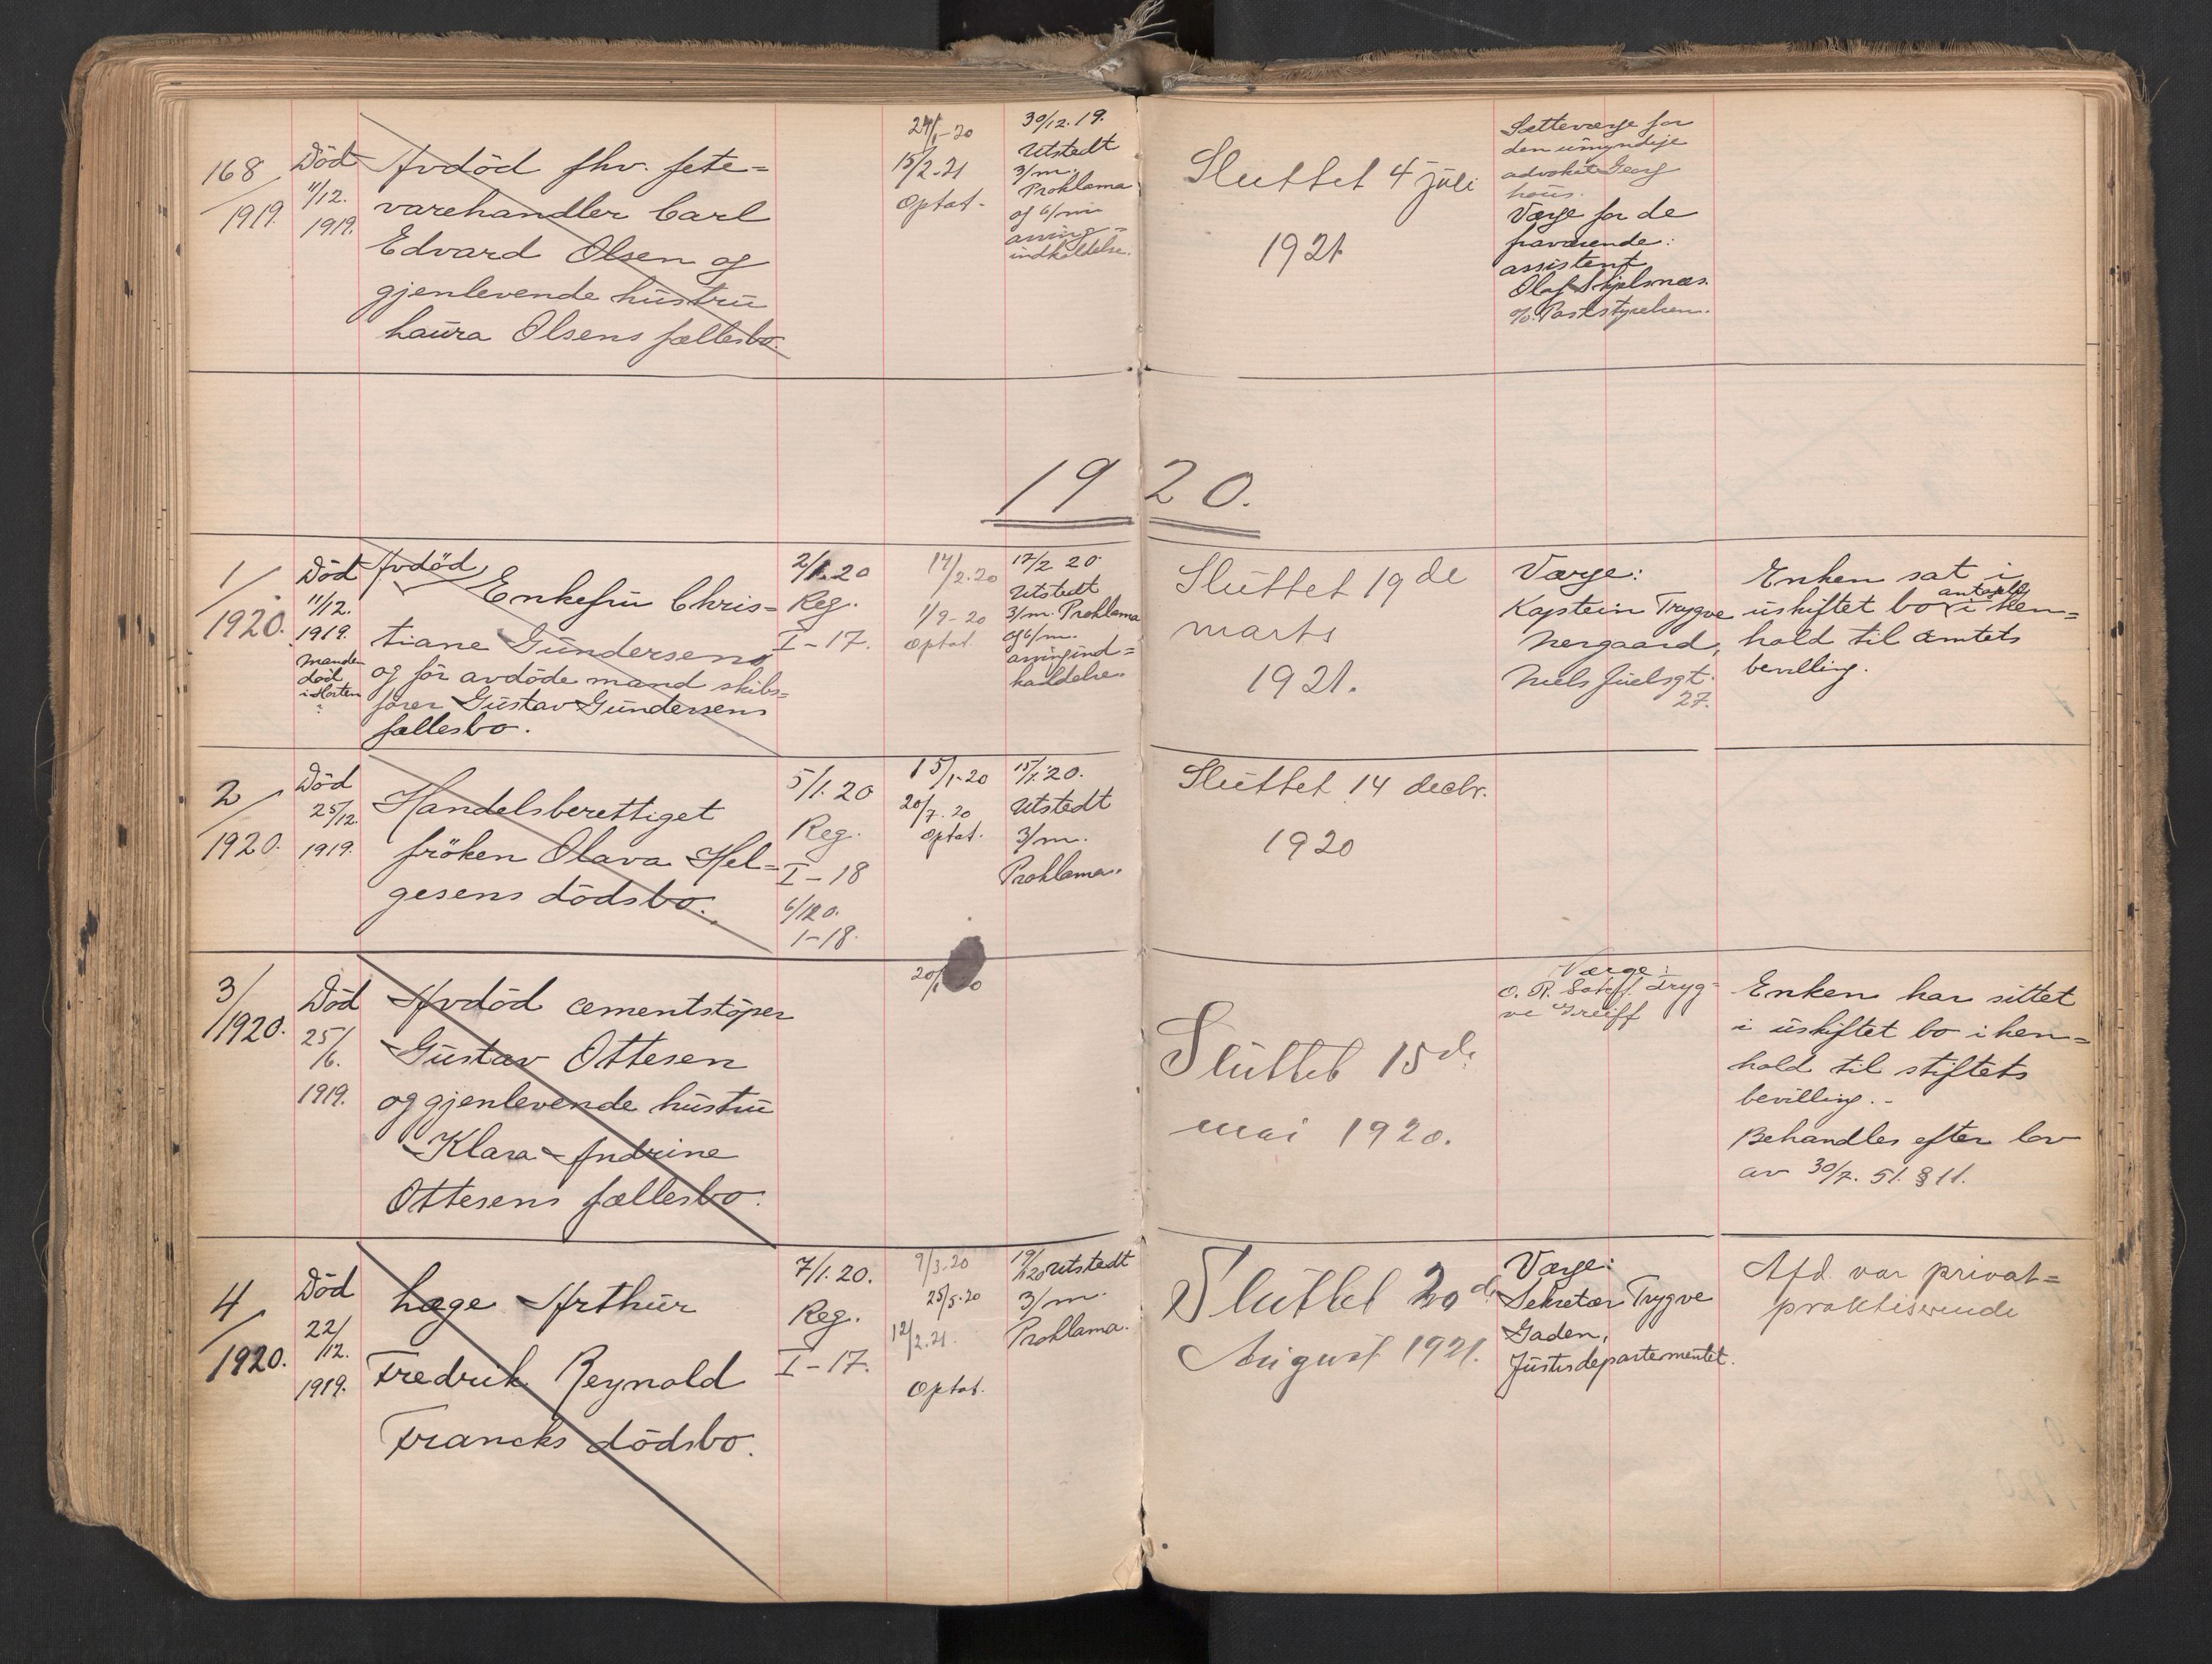 168
1919.
Död
11/12.
1919.
Avdöd fhv. fete=
varehandler Carl
Edvard Olsen og
gjenlevende hustru
Laura Olsens fællesbo.
15/2-21
Optat.
30/12.19.
Utstedt
3/m.
Proklama
og 6/m
arving=
indkaldelse.
Sluttet 4 juli
1921.
Sætteverge for
den umyndige
advokat Georg
Værge for de
fraværende:
assistent
Olaf Skjelsnæs.
Poststyrelsen.
1920.
1/
1920.
Död
11/12.
1919.
Manden
död
i Horten
Avdöd
Enkefru Chris=
tiane Gundersens
og för avdöde mand skibs=
förer Gustav Gundersens
fællesbo.
2/1.20
Reg.
I-17.
14/2.20
1/9-20
optat
17/2 20
Utstedt
3/m. Proklama
og 6/m.
arvingind=
kaldelse.
Sluttet 19de
marts
1921.
Værge:
Kaptein Trygve
Nergaard,
Niels Juelsgt.
27.
Enken sat i
uskiftet bo i hen=
hold til amtets
bevilling.
2/
1920.
Död
25/12.
1919.
Handelsberettiget
fröken Olava Hel=
gesens dödsbo.
5/1.20
Reg.
I-18
6/1 20.
1-18.
15/1-20
20/7.20
optat.
15/1.20.
Utstedt
3/m.
Proklama.
Sluttet 14 decbr.
1920
3/
1920.
Död
25/
6.
1919.
Avdöd cementstöper
Gustav Ottesen
og gjenlevende hustru
Klara Andrine
Ottesens fællesbo.
Sluttet 15de
mai 1920.
Værge:
O. R. Sakf. Tryg=
ve Greiff
Enken har sittet
i uskiftet bo i hen=
hold til stiftets
bevilling.-
Behandles efter lov
av 30/7. 51. § 11.
4/
1920.
Död
22/
12.
1919.
Læge Arthur
Fredrik Reynold
Francks dödsbo.
7/1.20.
Reg.
I-17.
9/3.20
25/5.20
12/2.21.
Optat.
19/1 20 Utstedt
3/m.
Proklama.
Sluttet 20de
August 1921.
Værge:
Sekretær Trygve
Gaden,
Justisdepartementet.
Afd. var privat=
praktiserende